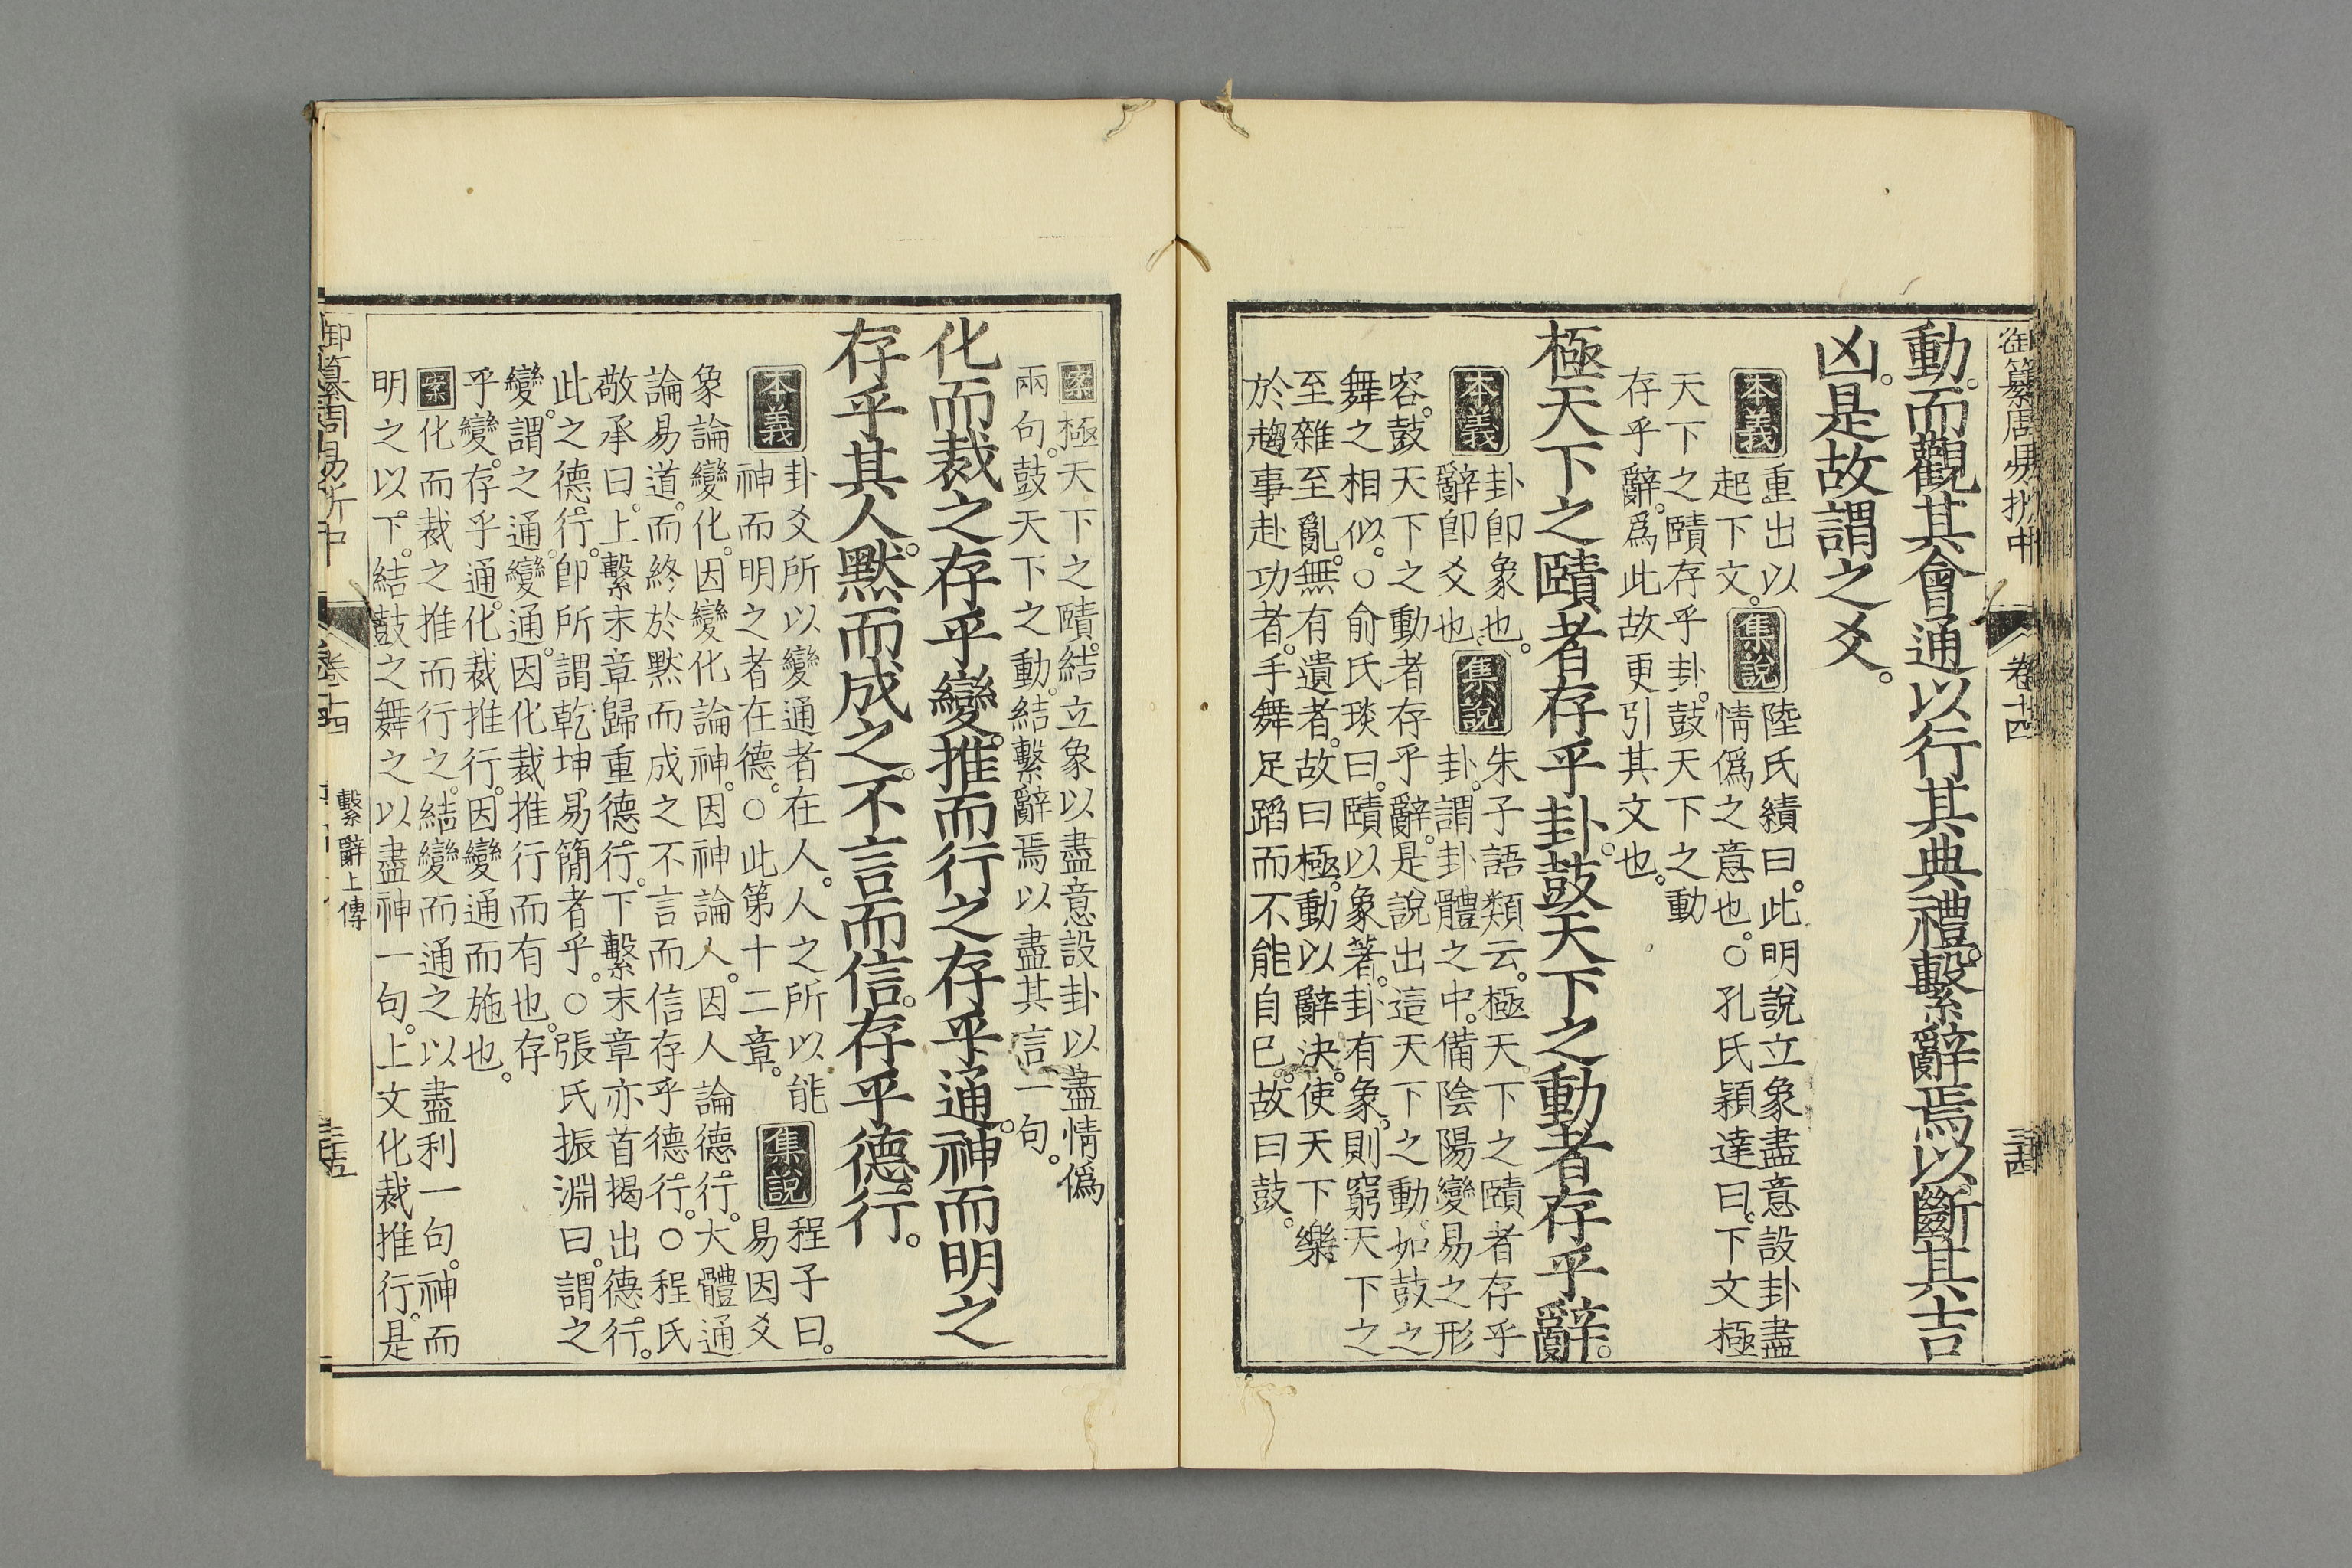 御纂周易折中
卷十四
三十四
動。而觀其會通以行其典禮。繫辭焉以斷其吉
凶。是故謂之爻。
本義
重出以
起下文。
集說
陸氏績曰。此明說立象盡意設卦盡
情僞之意也。○孔氏穎達曰。下文極
天下之賾存乎卦。鼓天下之動
存乎辭。爲此故更引其文也。
極天下之賾者存乎卦。鼓天下之動者存乎辭。
本義
卦卽象也。
辭卽爻也。
集說
朱子語類云。極天下之賾者存乎
卦。謂卦體之中。備陰陽變易之形
容。鼓天下之動者存乎辭。是說出這天下之動。如鼓之
舞之相似。○俞氏琰曰。賾以象著。卦有象。則窮天下之
至雜至亂。無有遺者。故曰極。動以辭決。使天下樂
於趨事赴功者。手舞足蹈而不能自已。故曰鼓。
案
極天下之賾。結立象以盡意設卦以盡情僞
兩句。鼓天下之動。結繫辭焉以盡其言一句。
化而裁之存乎變。推而行之存乎通。神而明之
存乎其人。默而成之。不言而信。存乎德行。
本義
卦爻所以變通者在人。人之所以能
神而明之者在德。○此第十二章。
集說
程子曰。
易因爻
象論變化。因變化論神。因神論人。因人論德行。大體通
論易道。而終於默而成之不言而信存乎德行。○程氏
敬承曰。上繫末章歸重德行。下繫末章亦首揭出德行。
此之德行。卽所謂乾坤易簡者乎。○張氏振淵曰。謂之
變。謂之通。變通。因化裁推行而有也。存
乎變。存乎通。化裁推行。因變通而施也。
案
化而裁之推而行之。結變而通之以盡利一句。神而
明之以下。結鼓之舞之以盡神一句。上文化裁推行。是
御纂周易折中
卷十四
繫辭上傳
三十五